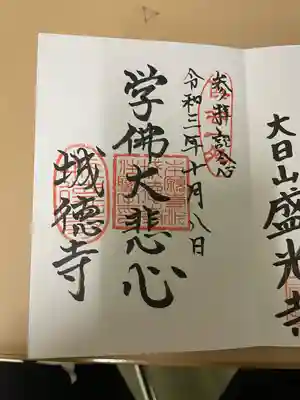 参拝記念
令和三年十月八日
学佛大悲心
城德寺
大日山盛光寺